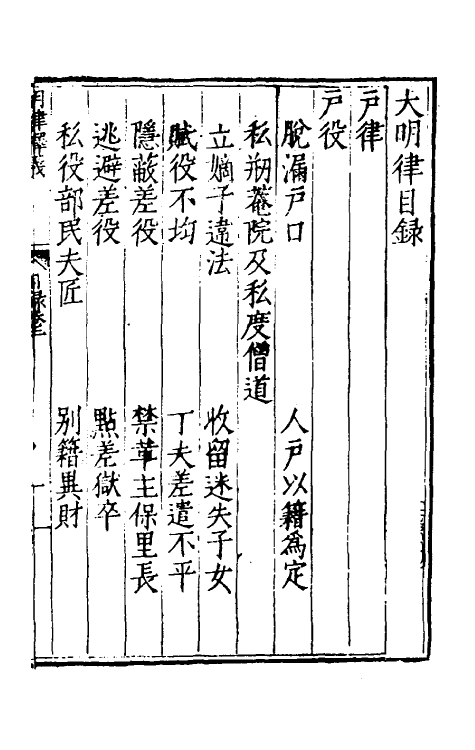 大明律目録
戶律
戶役
脫漏戶口　人戶以籍爲定
私刱菴院及私度僧道
立嫡子違法　收留迷失子女
賦役不均　丁夫差遣不平
隱蔽差役　禁革主保里長
逃避差役　點差獄卒
私役部民夫匠　別籍異財
明律釋義　目録卷